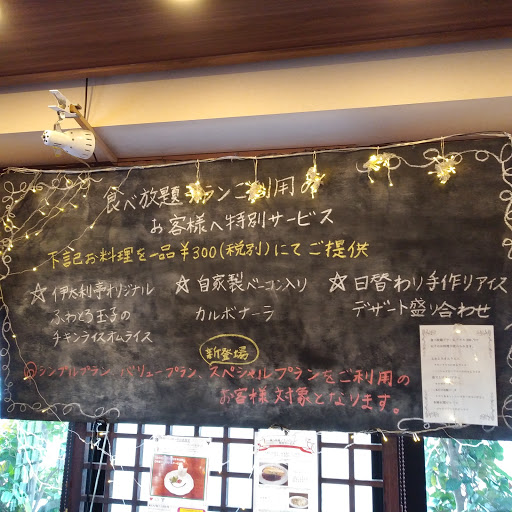 食べ放題プランご利用の
お客様へ特別サービス
下記お料理を一品¥300(税別)にてご提供
☆伊太利亭オリジナル
ふわとろ玉子の
チキンライスオムライス
☆自家製ベーコン入り
カルボナーラ
☆日替わり手作りアイス
デザート盛り合わせ
新登場
シンプルプラン、バリュープラン、スペシャルプランをご利用の
お客様対象となります。